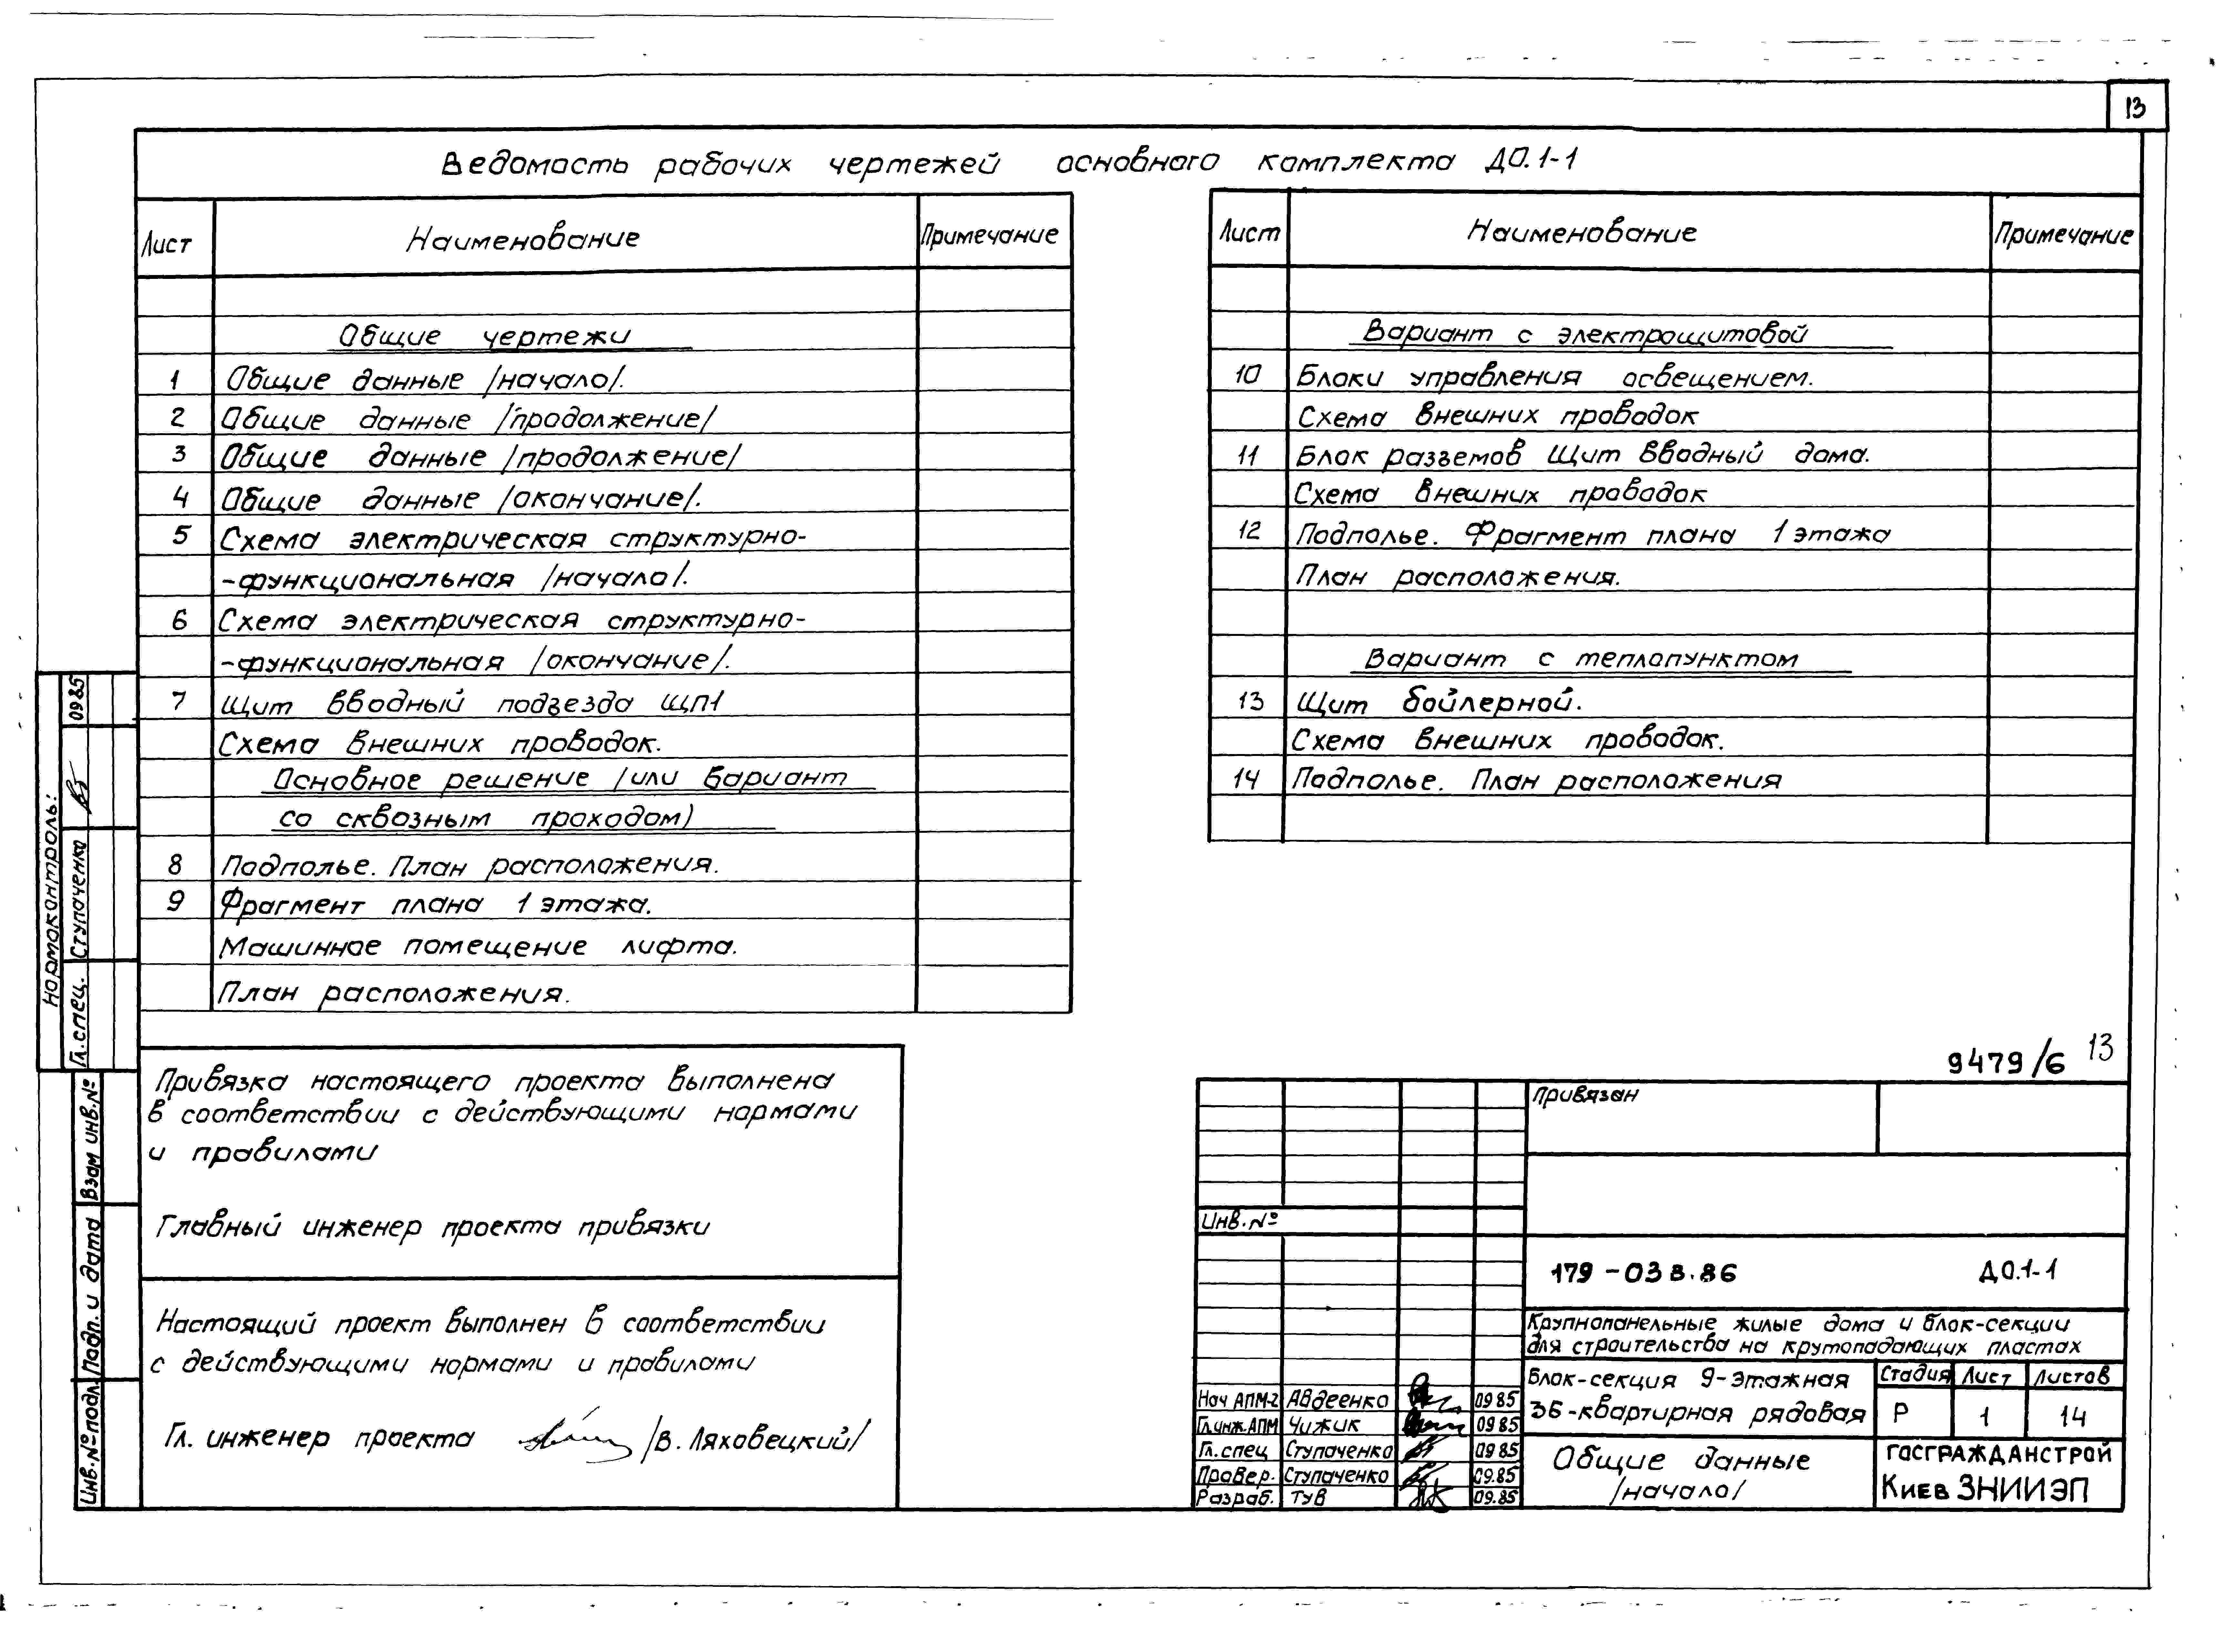 13
Ведомость рабочих чертежей основного комплекта ДО.1-1
Лист Наименование Примечание
Общие чертежи
1 Общие данные /начало/.
2 Общие данные /продолжение/
3 Общие данные /продолжение/
4 Общие данные /окончание/.
5 Схема электрическая структурно-
-функциональная /начало/.
6 Схема электрическая структурно-
-функциональная /окончание/.
7 Щит вводный подъезда ЩП1
Схема внешних проводок.
Основное решение /или вариант
со сквозным проходом)
8 Подполье. План расположения.
9 Фрагмент плана 1 этажа.
Машинное помещение лифта.
План расположения.
Лист Наименование Примечание
Вариант с электрощитовой
10 Блоки управления освещением.
Схема внешних проводок
11 Блок разъемов Щит вводный дома.
Схема внешних проводок
12 Подполье. Фрагмент плана 1 этажа
План расположения.
Вариант с теплопунктом
13 Щит бойлерной.
Схема внешних проводок.
14 Подполье. План расположения
Нормоконтроль:
Гл. спец. Ступаченко 0985
Взам инв.№
Подп. и дата
Инв.№ подл.
Привязка настоящего проекта выполнена
в соответствии с действующими нормами
и правилами
Главный инженер проекта привязки
Настоящий проект выполнен в соответствии
с действующими нормами и правилами
Гл. инженер проекта /В. Ляховецкий/
9479/6 13
Привязан
Инв.№
179-03 в.86 ДО.1-1
Крупнопанельные жилые дома и блок-секции
для строительства на крутопадающих пластах
Блок-секция 9-этажная
36-квартирная рядовая
Стадия Лист Листов
Р 1 14
Общие данные
/начало/
ГОСГРАЖДАНСТРОЙ
Киев ЗНИИЭП
Нач АПМ-2 Авдеенко 0985
Гл.инж.АПМ Чижик 0985
Гл.спец Ступаченко 0985
Провер. Ступаченко 09.85
Разраб. Тув 09.85